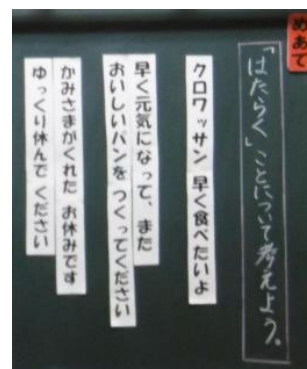 めあて
「はたらく」ことについて考えよう。
クロワッサン 早く食べたいよ
早く元気になって、また
おいしいパンを つくってください
かみさまがくれた お休みです
ゆっくり休んで ください